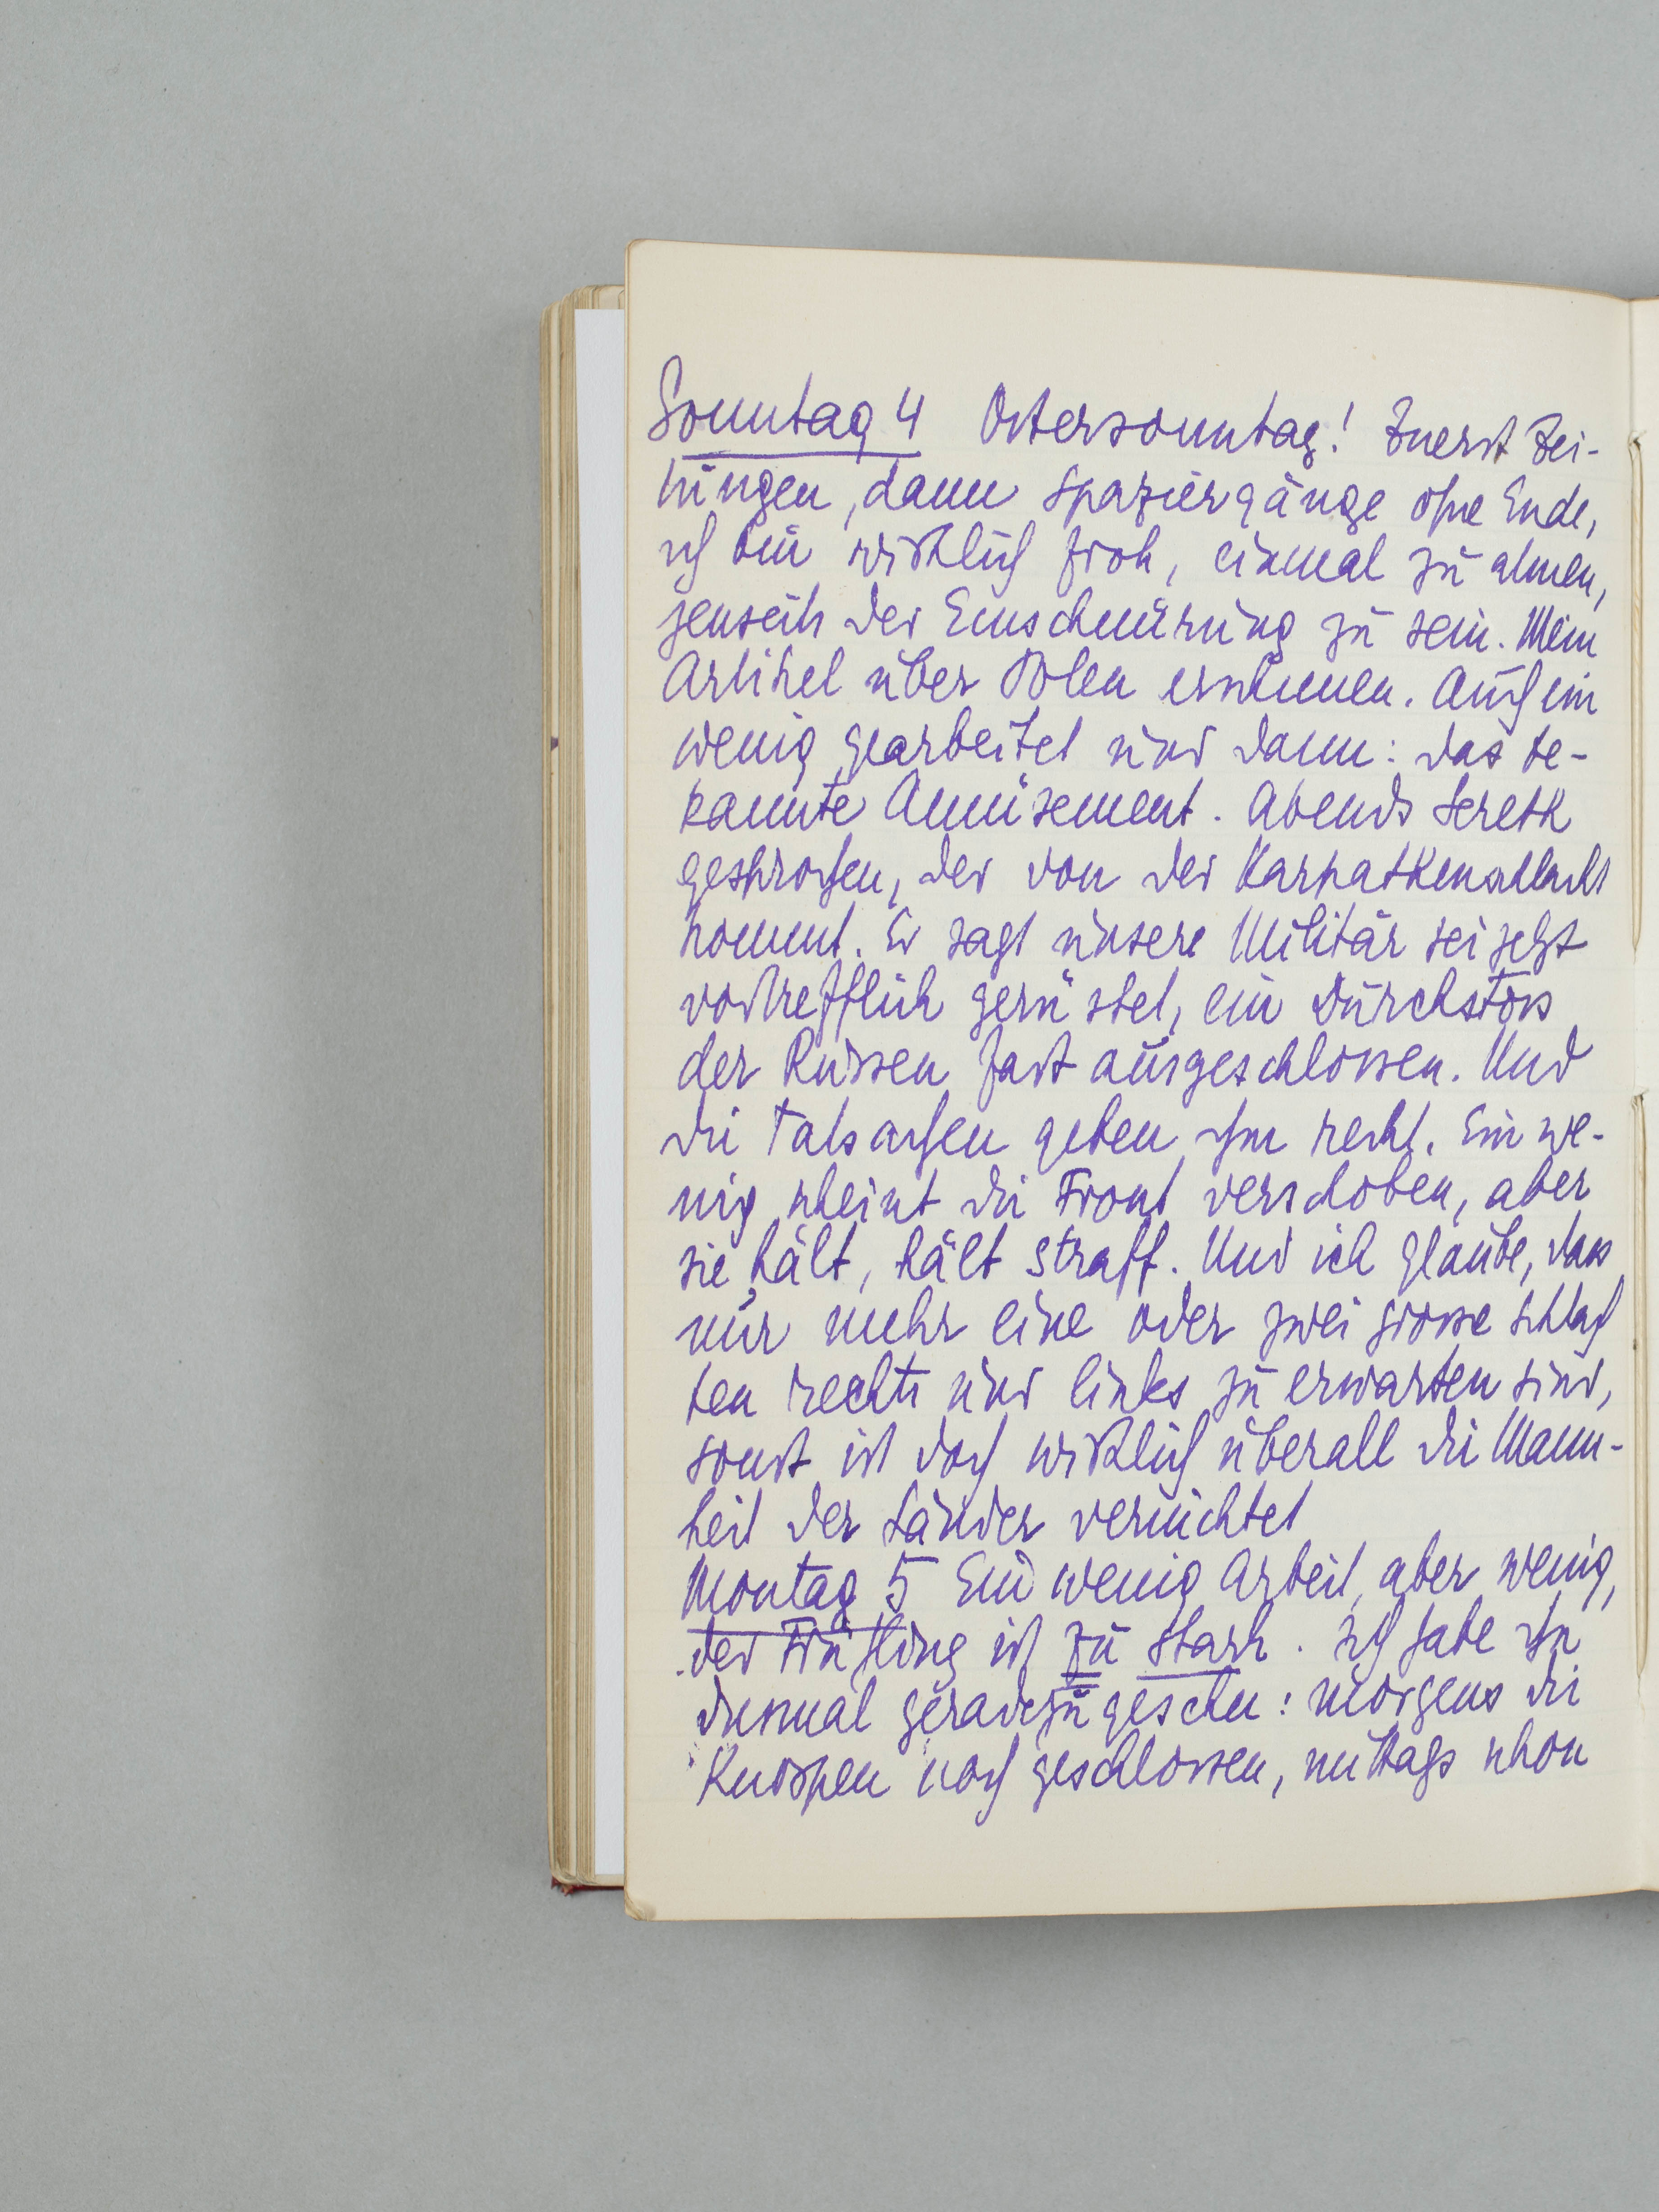 Sonntag 4 Ostersonntag! Zuerst Zei-
tungen, dann Spaziergänge ohne Ende,
ich bin wirklich froh, einmal zu atmen,
jenseits der Einschnürung zu sein. Mein
Artikel über Polen erschienen. Auch ein
wenig gearbeitet und dann: das be-
kannte Amüsement. Abends
gesprochen, der von der Karpathenschlacht
kommt. Er sagt unsere Militär sei jetzt
vortrefflich gerüstet, ein Durchstoss
der Russen fast ausgeschlossen. Und
die Tatsachen geben ihm recht. Ein we-
nig scheint die Front verschoben, aber
sie hält, hält straff. Und ich glaube, dass
nur mehr eine oder zwei grosse Schlach
ten rechts und links zu erwarten sind,
sonst ist doch wirklich überall die Mann-
heit der Länder vernichtet
Montag 5 Ein wenig Arbeit, aber wenig,
der Frühling ist zu stark. Ich habe ihn
diesmal geradezu gesehn: morgens die
Knospen noch geschlossen, mittags schon